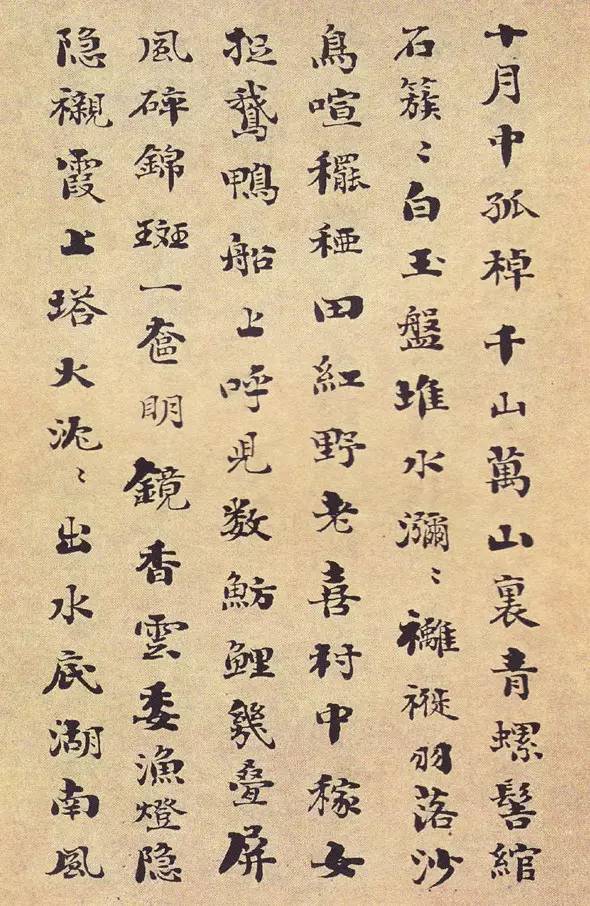 十月中孤棹千山萬山裏青螺髻綰
石簇〻白玉盤堆水瀰〻褷羽落沙
鳥喧䆉稏田紅野老喜村中稼女
捉鵝鴨船上呼兒数魴鯉幾叠屏
風碎錦斑一奩明鏡香雲委漁燈隐
隐襯霞上塔火沉〻出水底湖南風